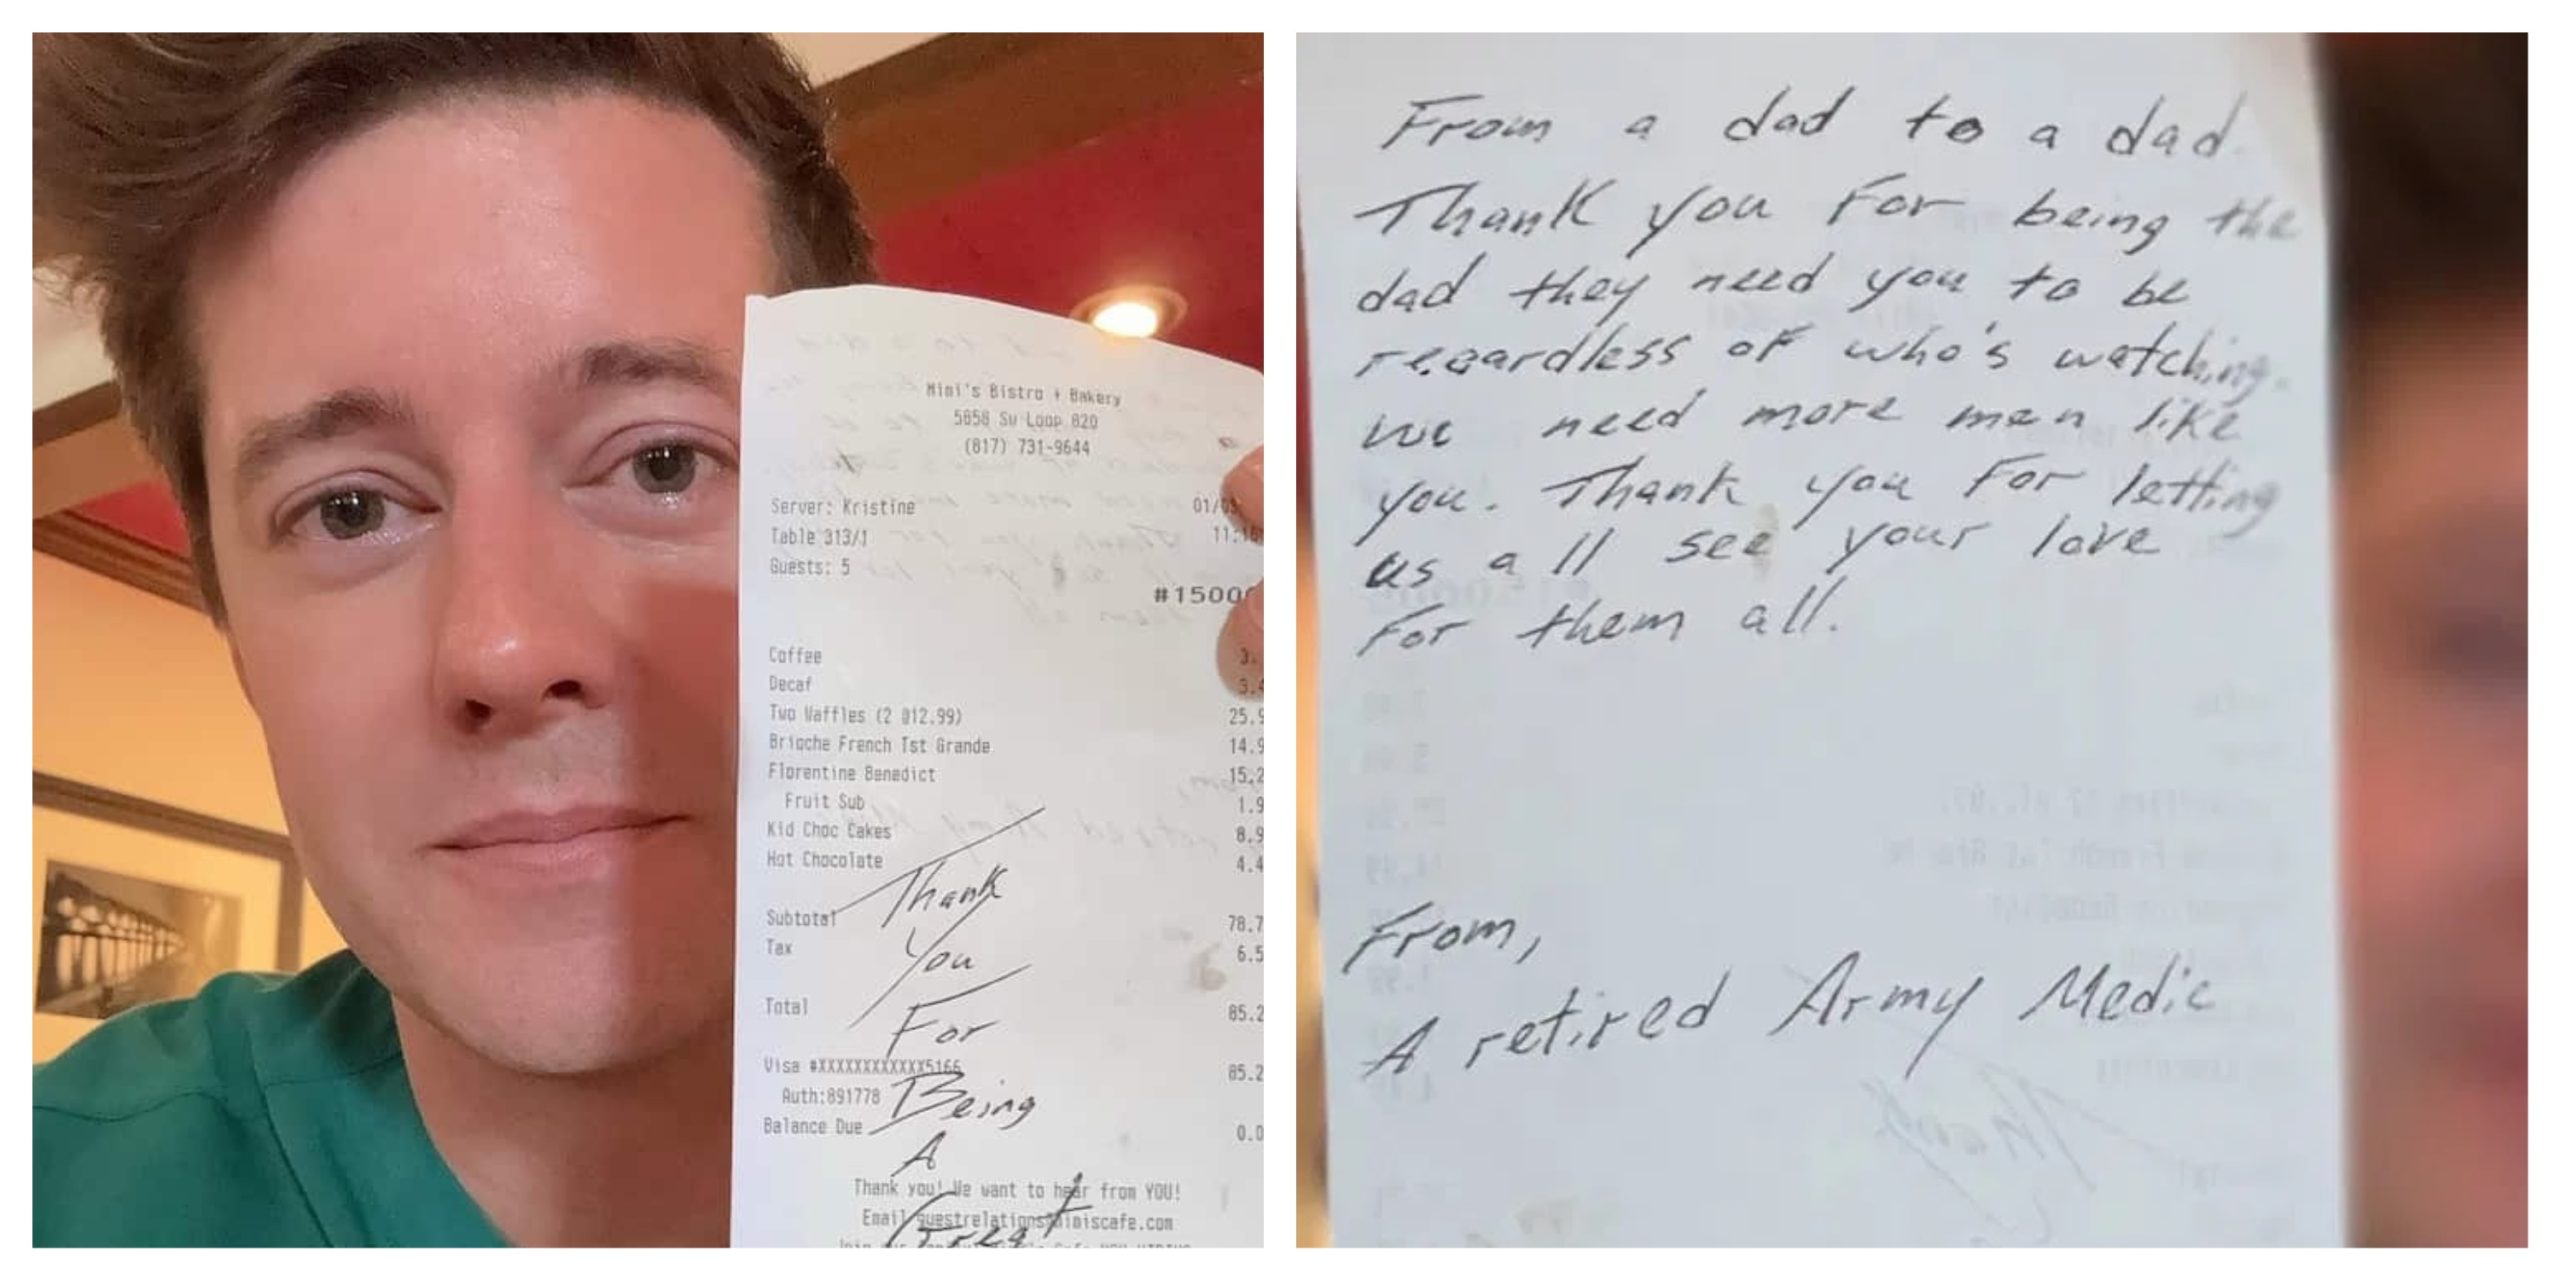 Mimi's Bistro + Bakery
5858 Sw Loop 820
(817) 731-9644
Server: Kristine 01/03
Table 313/1 11:16
Guests: 5
#1500
Coffee 3.
Decaf 3.4
Two Waffles (2 @12.99) 25.9
Brioche French Tst Grande 14.9
Florentine Benedict 15.2
Fruit Sub 1.9
Kid Choc Cakes 8.9
Hot Chocolate 4.4
Subtotal 78.7
Tax 6.5
Total 85.2
Visa #XXXXXXXXXXXX5166 85.2
Auth:891778
Balance Due 0.0
Thank you! We want to hear from YOU!
Email guestrelations@mimiscafe.com
Thank
You
For
Being
A
Great
From a dad to a dad.
Thank you For being the
dad they need you to be
regardless of who's watching.
we need more men like
you. Thank you For letting
us all see your love
For them all.
From,
A retired Army Medic